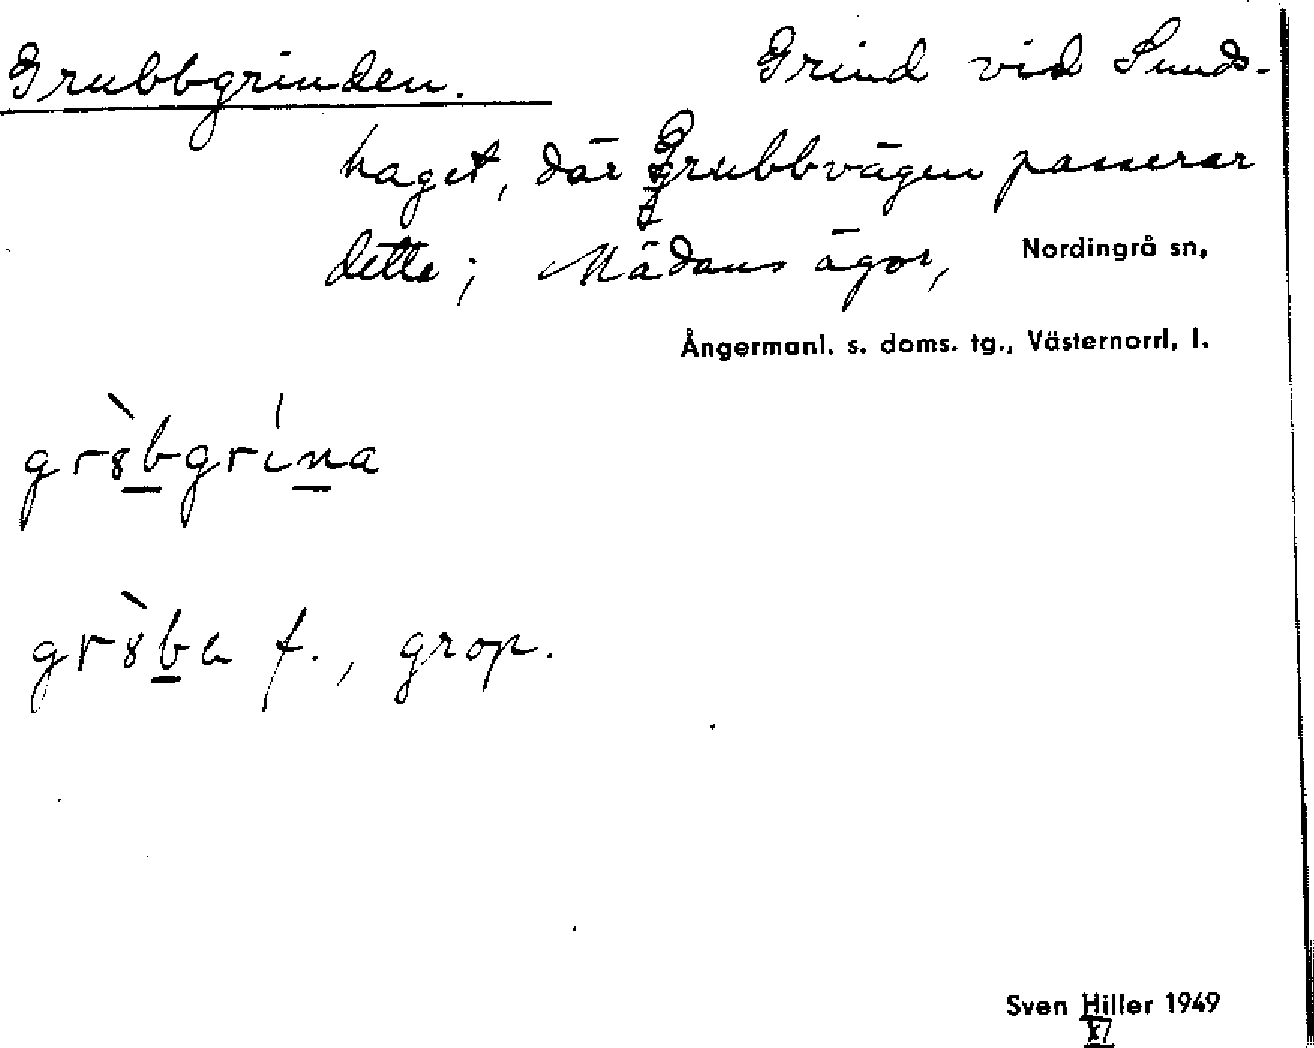 Grubbgrinden. Grind vid Sunds-
haget, där Grubbvägen passerar
detta; Mädans ägor, Nordingrå sn,
Ångermanl. s. doms. tg., Västernorrl. l.
grꞷ̀bgrína
grꞷ̀ba f., grop.
Sven Hiller 1949